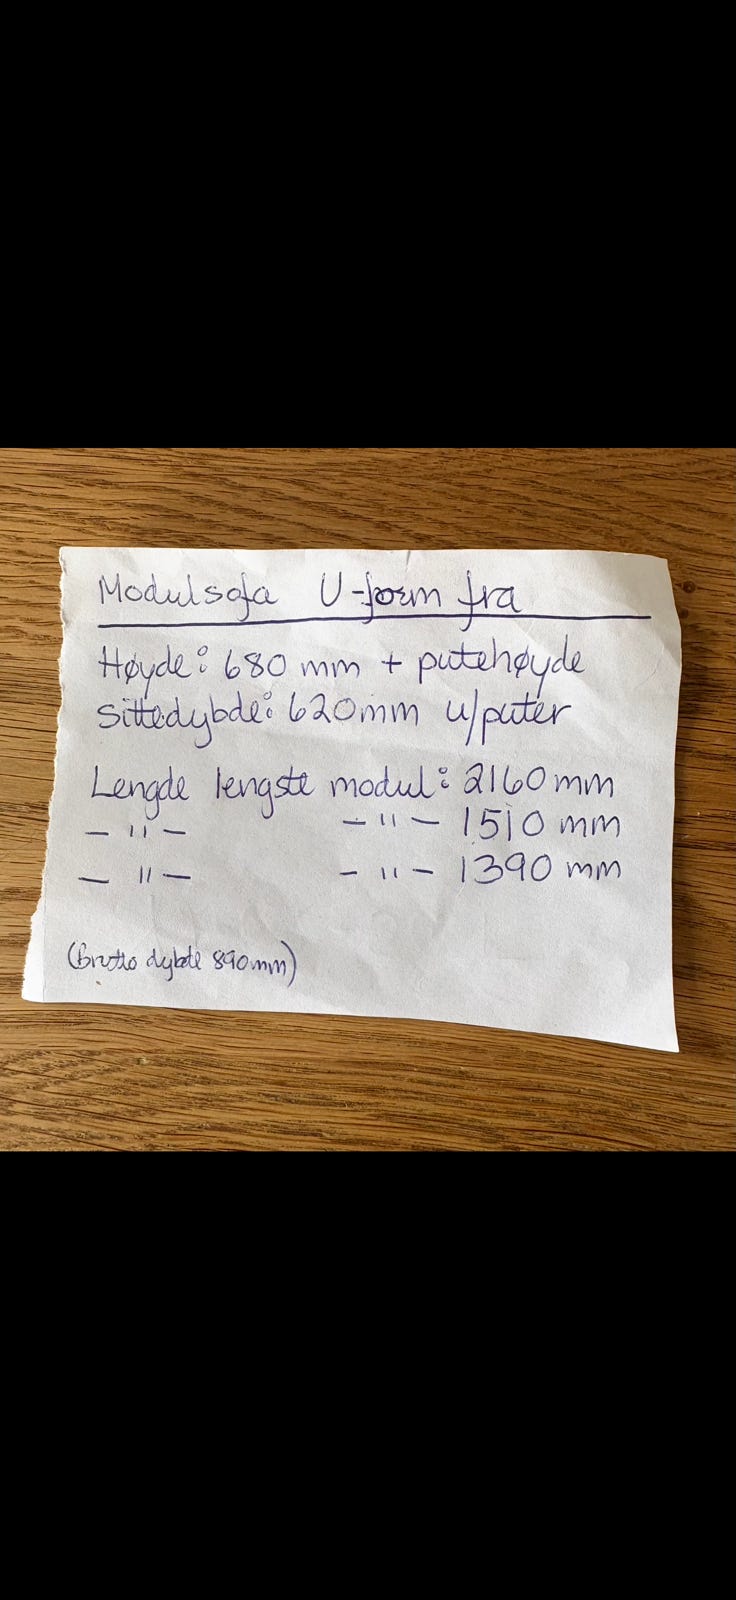 Modulsofa U-form fra
Høyde: 680 mm + putehøyde
Sittedybde: 620mm u/puter
Lengde lengste modul: 2160mm
— " — — " — 1510 mm
— " — — " — 1390 mm
(Brutto dybde 890mm)